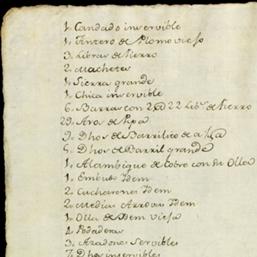 1, Candado inservible
1, Tintero de Plomo viejo
3, Libras de fierro
2, Machetes
1, Sierra grande
1, Chica inservible
6, Barras con 2@ 22 Libs de fierro
29, Aros de Pipa
9, Dhos de Barrilito de a
5, Dhos de Barril grande
1, Alambique de Cobre con su Olla
1, Embudo Idem
2, Cucharones Idem
2, Medias Arrovas Idem
1, Olla de Idem vieja
4, Podaderas
3, Azadones Servibles
7, Dhos inservibles